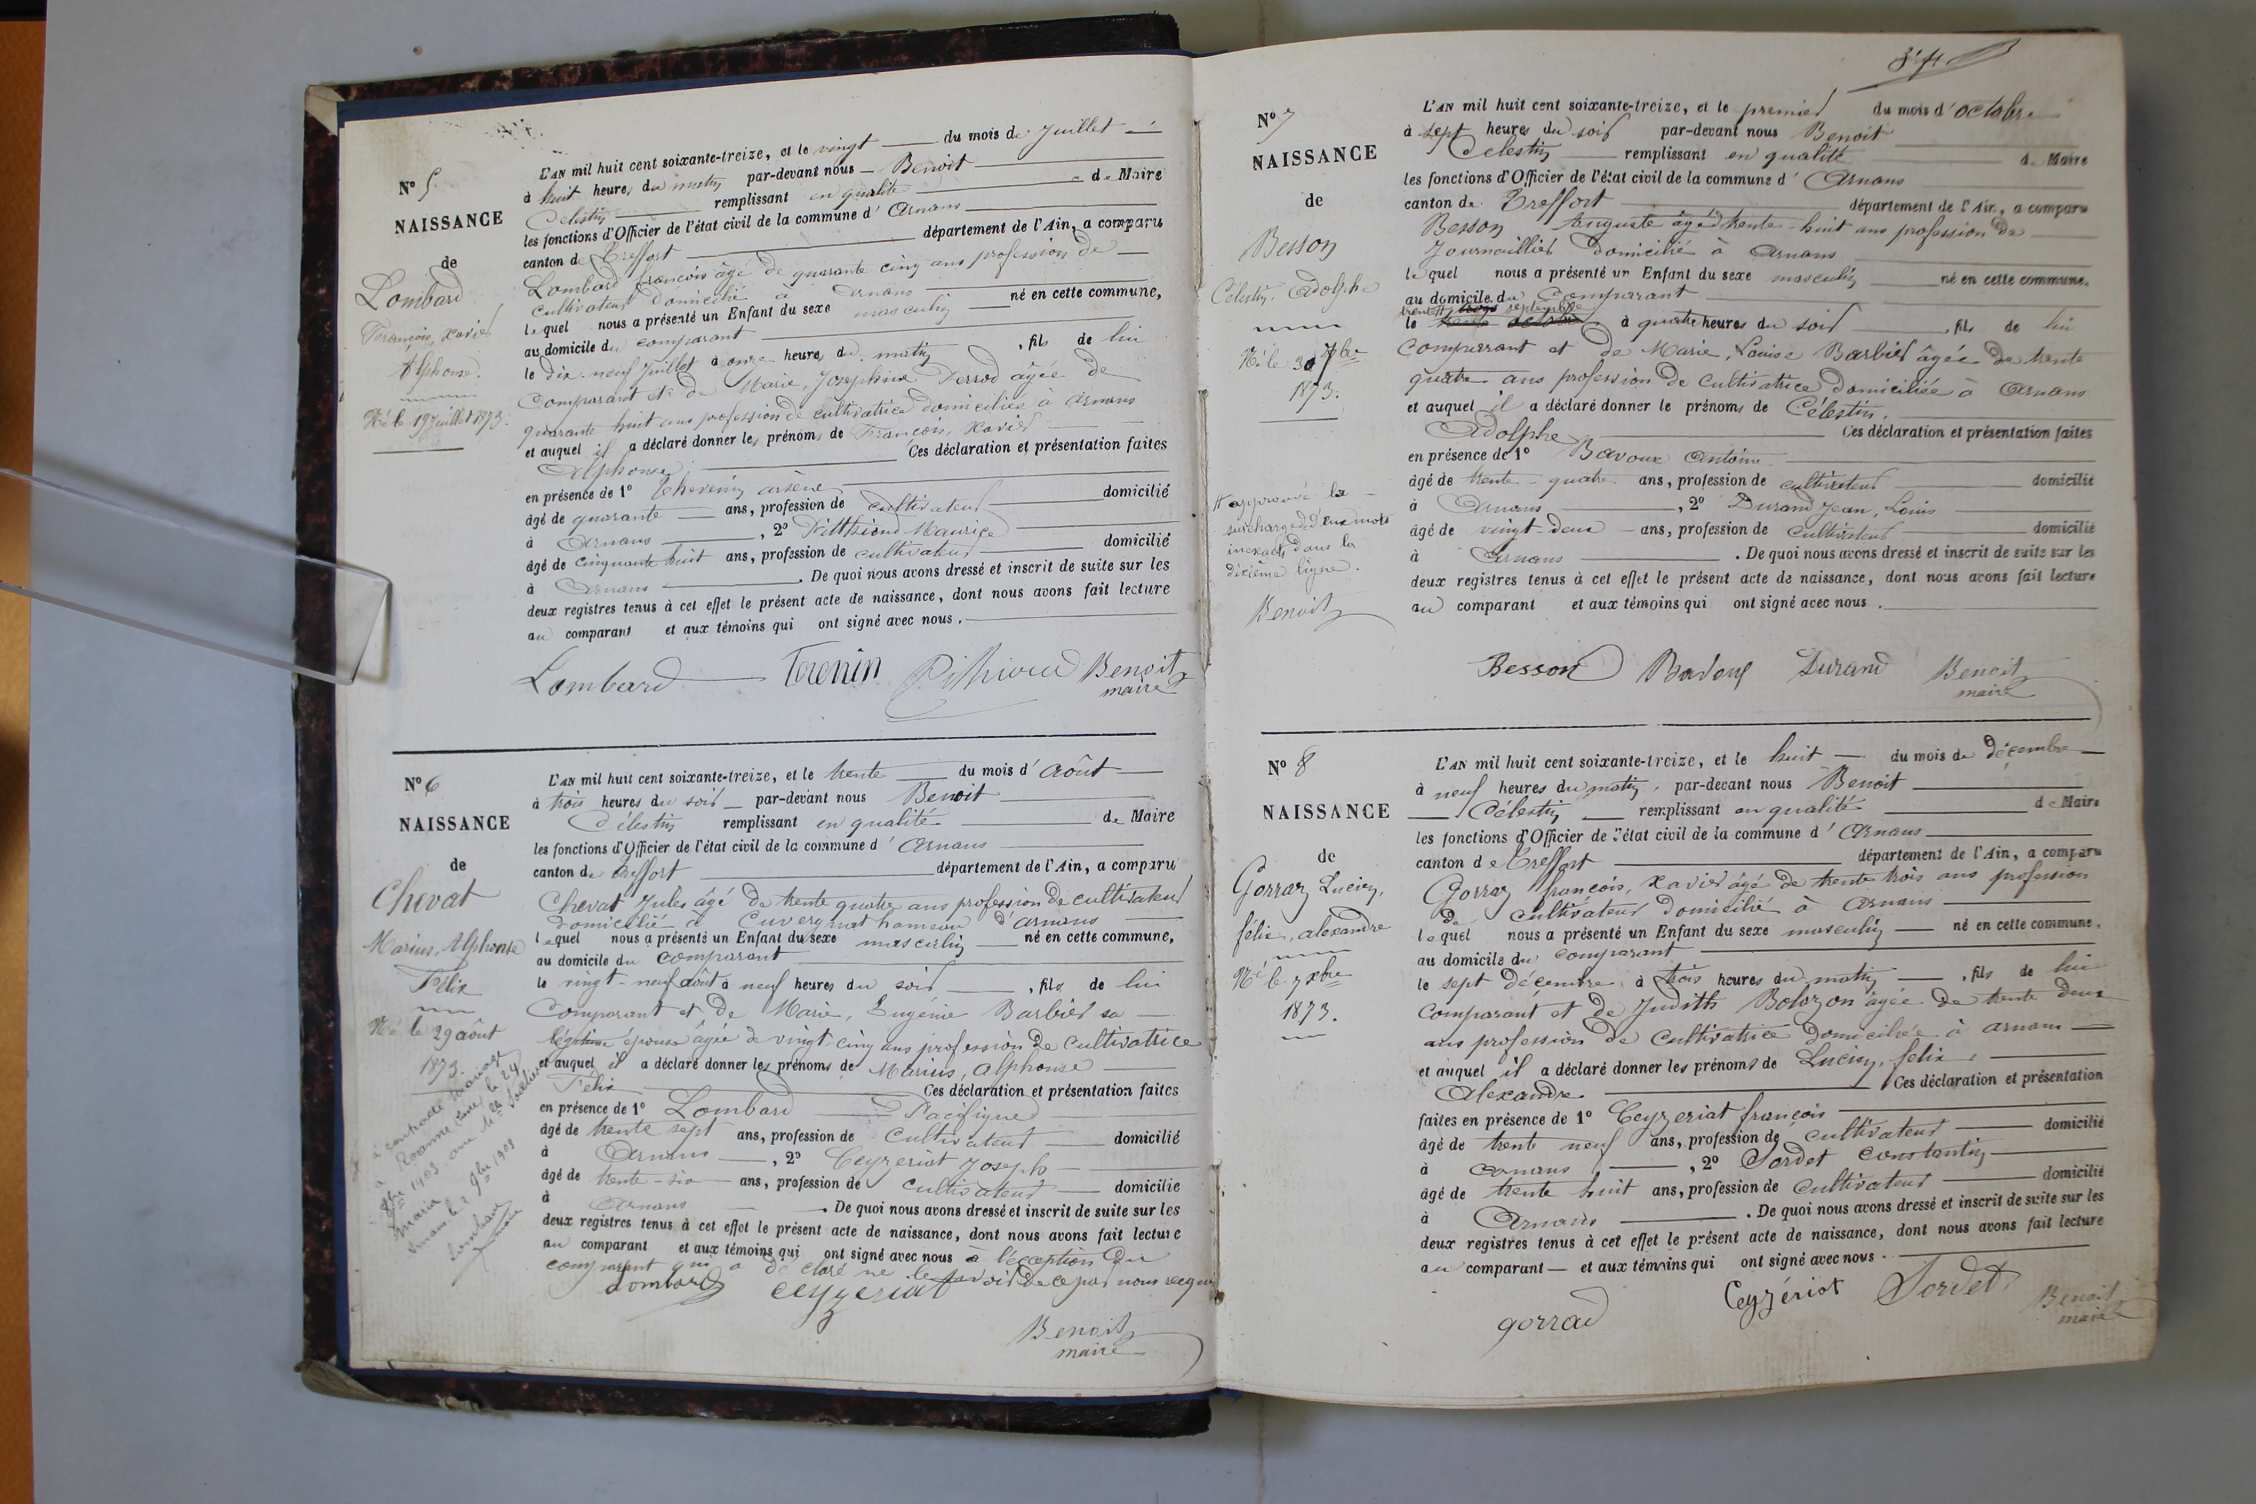 N° 5.
NAISSANCE
de
Lombard
François, Xavier
Alphonse.
Né le 19 juillet 1873.
L'AN mil huit cent soixante-treize, et le vingt du mois de Juillet
à huit heures du matin par-devant nous Benoit
Célestin remplissant en qualité de Maire
les fonctions d'Officier de l'état civil de la commune d' Arnans
canton de Treffort département de l'Ain, a comparu
Lombard françois âgé de quarante cinq ans profession de
cultivateur domicilié à Arnans
lequel nous a présenté un Enfant du sexe masculin né en cette commune,
au domicile du comparant
le dix-neuf Juillet à onze heures du matin, fils de lui
Comparant et de Marie, Josephine Perrod âgée de
quarante huit ans profession de cultivatrice domiciliée à Arnans
et auquel il a déclaré donner les prénoms de François, Xavier
Alphonse. Ces déclaration et présentation faites
en présence de 1° Thevenin arsène
âgé de quarante ans, profession de cultivateur domicilié
à Arnans, 2° Pitthioud Maurice
âgé de cinquante huit ans, profession de cultivateur domicilié
à Arnans. De quoi nous avons dressé et inscrit de suite sur les
deux registres tenus à cet effet le présent acte de naissance, dont nous avons fait lecture
au comparant et aux témoins qui ont signé avec nous.
Lombard Tevenin Pithioud Benoit
maire
N° 6
NAISSANCE
de
Chevat
Marius, Alphonse
Félix
Né le 29 août
1873.
a contracté mariage
à Roanne le 24
8bre 1903 avec
Maria
Arnans le 2 9bre 1903
L'AN mil huit cent soixante-treize, et le trente du mois d' Août
à trois heures du soir par-devant nous Benoit
Célestin remplissant en qualité de Maire
les fonctions d'Officier de l'état civil de la commune d' Arnans
canton de Treffort département de l'Ain, a comparu
Chevat Jules âgé de trente quatre ans profession de cultivateur
domicilié à Cuvergnat hameau d'Arnans
lequel nous a présenté un Enfant du sexe masculin né en cette commune,
au domicile du comparant
le vingt-neuf août à neuf heures du soir, fils de lui
Comparant et de Marie, Eugénie Barbier sa
légitime épouse âgée de vingt-cinq ans profession de cultivatrice
et auquel il a déclaré donner les prénoms de Marius, Alphonse
Félix Ces déclaration et présentation faites
en présence de 1° Lombard Pacifique
âgé de trente sept ans, profession de cultivateur domicilié
à Arnans, 2° Ceyzeriat Joseph
âgé de trente-six ans, profession de cultivateur domicilié
à Arnans. De quoi nous avons dressé et inscrit de suite sur les
deux registres tenus à cet effet le présent acte de naissance, dont nous avons fait lecture
au comparant et aux témoins qui ont signé avec nous à l'éxception du
comparant qui a déclaré ne le savoir de ce par nous requis
Lombard Ceyzeriat
Benoit
maire
N° 7
NAISSANCE
de
Besson
Célestin, Adolphe
Né le 30 7bre
1873.
approuvé la
surcharge d'un mot
inexact dans la
dixième ligne.
Benoit
L'AN mil huit cent soixante-treize, et le premier du mois d'octobre
à sept heures du soir par-devant nous Benoit
Célestin remplissant en qualité de Maire
les fonctions d'Officier de l'état civil de la commune d' Arnans
canton de Treffort département de l'Ain, a comparu
Besson Auguste âgé trente-huit ans profession de
Journaillier domicilié à Arnans
lequel nous a présenté un Enfant du sexe masculin né en cette commune,
au domicile du Comparant
trente septembre
le à quatre heures du soir, fils de lui
Comparant et de Marie, Louise Barbier âgée de trente
quatre ans profession de cultivatrice domiciliée à Arnans
et auquel il a déclaré donner le prénoms de Célestin,
Adolphe Ces déclaration et présentation faites
en présence de 1° Bavoux Antoine
âgé de trente-quatre ans, profession de cultivateur domicilié
à Arnans, 2° Durand Jean, Louis
âgé de vingt-deux ans, profession de cultivateur domicilié
à Arnans. De quoi nous avons dressé et inscrit de suite sur les
deux registres tenus à cet effet le présent acte de naissance, dont nous avons fait lecture
au comparant et aux témoins qui ont signé avec nous.
Besson Bavoux Durand Benoit
maire
N° 8
NAISSANCE
de
Gorraz Lucien,
félix, alexandre
Né le 7 xbre
1873.
L'AN mil huit cent soixante-treize, et le huit du mois de décembre
à neuf heures du matin, par-devant nous Benoit
Célestin remplissant en qualité de Maire
les fonctions d'Officier de l'état civil de la commune d' Arnans
canton de Treffort département de l'Ain, a comparu
Gorraz françois, xavier âgé de trente trois ans profession
de cultivateur domicilié à Arnans
lequel nous a présenté un Enfant du sexe masculin né en cette commune,
au domicile du comparant
le sept décembre à trois heures du matin, fils de lui
Comparant et de Judith Bolozon âgée de trente deux
ans profession de cultivatrice domiciliée à arnans
et auquel il a déclaré donner les prénoms de Lucien, felix,
Alexandre. Ces déclaration et présentation
faites en présence de 1° Ceyzeriat françois
âgé de trente neuf ans, profession de cultivateur domicilié
à arnans, 2° Sordet Constantin
âgé de trente huit ans, profession de cultivateur domicilié
à Arnans. De quoi nous avons dressé et inscrit de suite sur les
deux registres tenus à cet effet le présent acte de naissance, dont nous avons fait lecture
au comparant et aux témoins qui ont signé avec nous.
gorraz Ceyzériat Sordet Benoit
maire